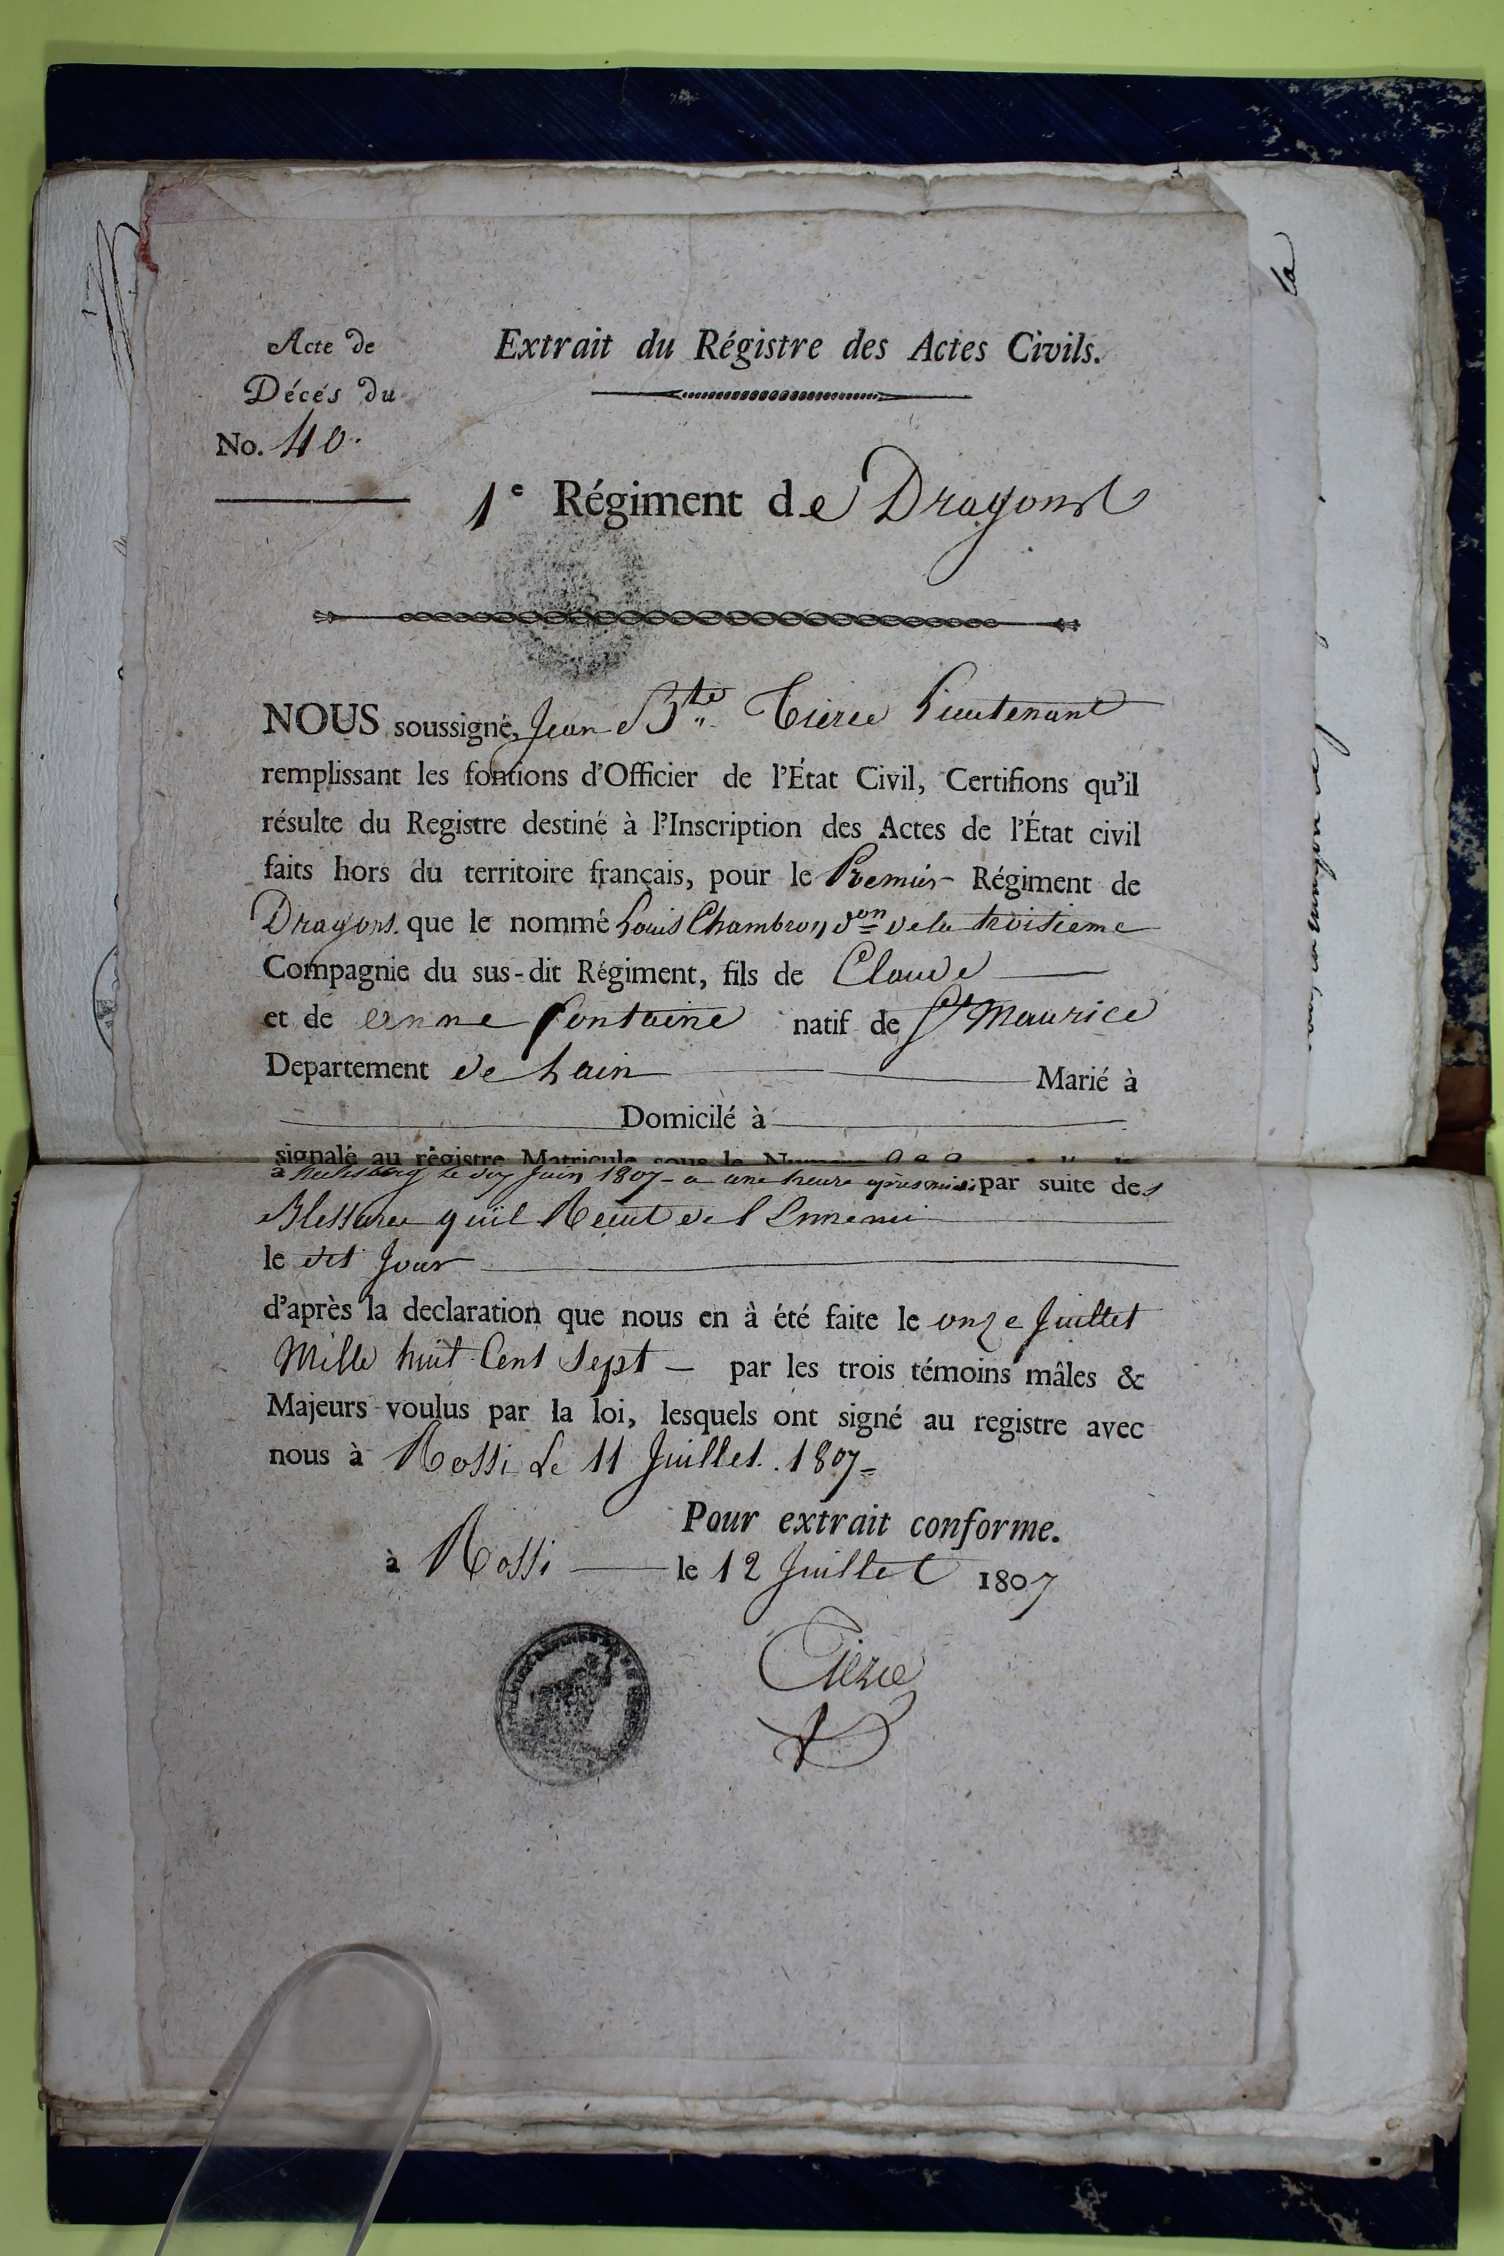 Acte de
Décés du
No. 40.
Extrait du Régistre des Actes Civils.
1e Régiment de Dragons
NOUS soussigné, Jean Bte Cierce Lieutenant
remplissant les fontions d'Officier de l'État Civil, Certifions qu'il
résulte du Registre destiné à l'Inscription des Actes de l'État civil
faits hors du territoire français, pour le Premier Régiment de
Dragons. que le nommé Louis Chambron don de la troisieme
Compagnie du sus-dit Régiment, fils de Claude
et de anne fontaine natif de St Maurice
Departement de Lain Marié à
Domicilé à
signalé au régistre Matricule sous le Numero
à heilsberg le dix Juin 1807 a une heure après midi par suite des
Blessures quil Reçut de l Ennemi
le dit Jour
d'après la declaration que nous en à été faite le onze Juillet
Mille huit Cent Sept par les trois témoins mâles &
Majeurs voulus par la loi, lesquels ont signé au registre avec
nous à Rossi Le 11 Juillet. 1807
Pour extrait conforme.
à Rossi le 12 Juillet 1807
Cierce
la